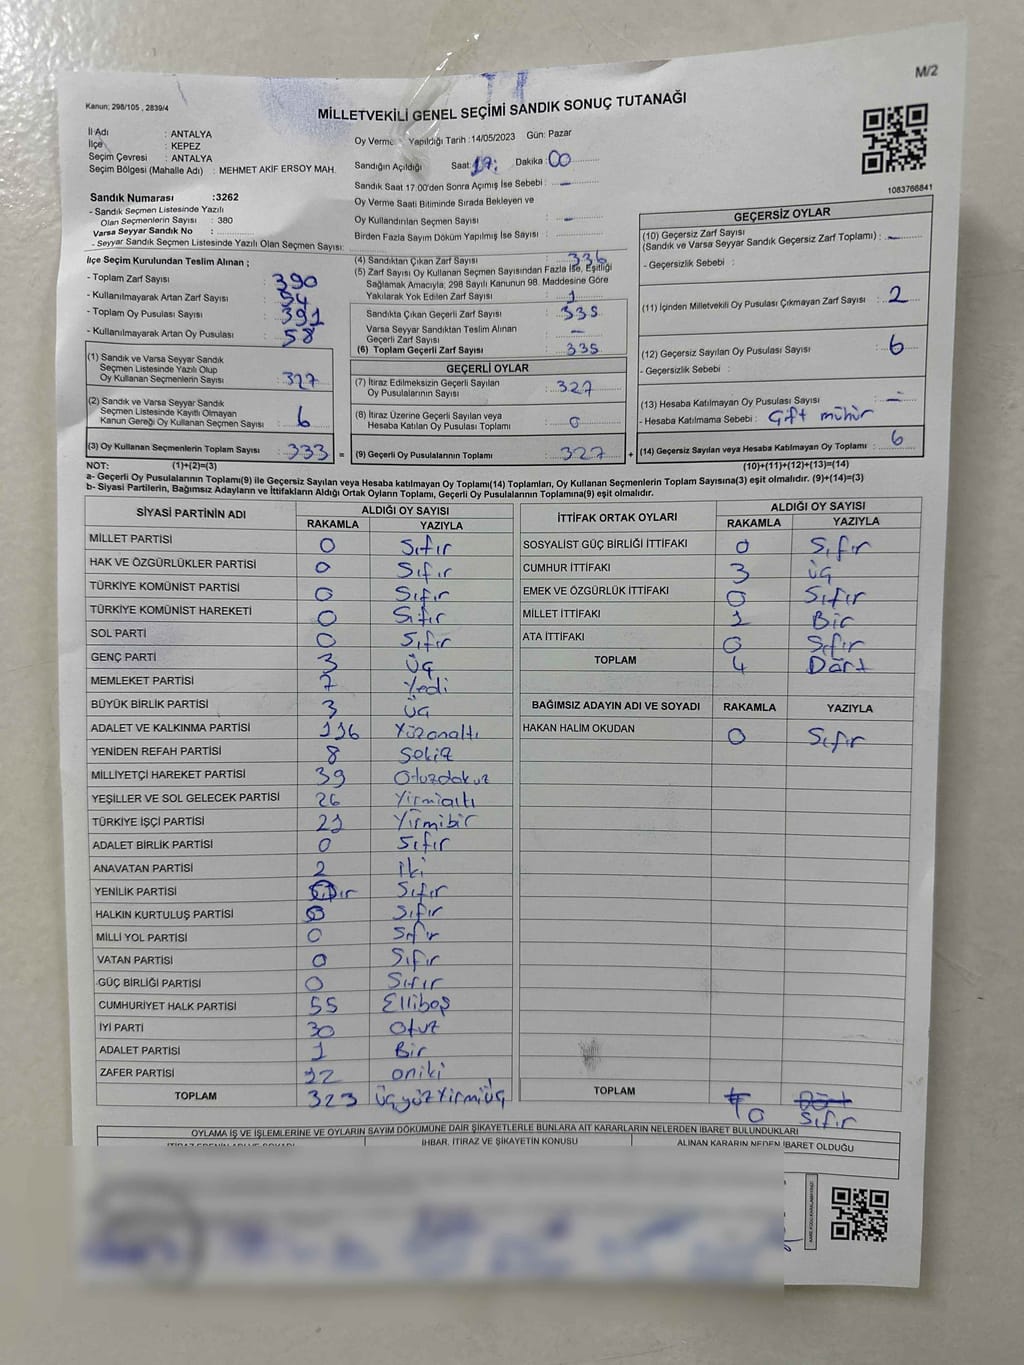 M/2
Kanun; 298/105 , 2839/4
MİLLETVEKİLİ GENEL SEÇİMİ SANDIK SONUÇ TUTANAĞI
İl Adı : ANTALYA
İlçe : KEPEZ
Seçim Çevresi : ANTALYA
Seçim Bölgesi (Mahalle Adı) : MEHMET AKİF ERSOY MAH.
Oy Verme Yapıldığı Tarih :14/05/2023 Gün: Pazar
Sandığın Açıldığı Saat: 17: Dakika :00
Sandık Saat 17:00'den Sonra Açımış İse Sebebi : –
Oy Verme Saati Bitiminde Sırada Bekleyen ve
Oy Kullandırılan Seçmen Sayısı : –
Birden Fazla Sayım Döküm Yapılmış İse Sayısı :
1083766841
Sandık Numarası :3262
- Sandık Seçmen Listesinde Yazılı
Olan Seçmenlerin Sayısı : 380
Varsa Seyyar Sandık No :
- Seyyar Sandık Seçmen Listesinde Yazılı Olan Seçmen Sayısı:
İlçe Seçim Kurulundan Teslim Alınan ;
- Toplam Zarf Sayısı : 390
- Kullanılmayarak Artan Zarf Sayısı : 54
- Toplam Oy Pusulası Sayısı : 391
- Kullanılmayarak Artan Oy Pusulası : 58
(1) Sandık ve Varsa Seyyar Sandık
Seçmen Listesinde Yazılı Olup
Oy Kullanan Seçmenlerin Sayısı : 327
(2) Sandık ve Varsa Seyyar Sandık
Seçmen Listesinde Kayıtlı Olmayan
Kanun Gereği Oy Kullanan Seçmen Sayısı : 6
(3) Oy Kullanan Seçmenlerin Toplam Sayısı : 333 =
(4) Sandıktan Çıkan Zarf Sayısı : 336
(5) Zarf Sayısı Oy Kullanan Seçmen Sayısından Fazla İse, Eşitliği
Sağlamak Amacıyla, 298 Sayılı Kanunun 98. Maddesine Göre
Yakılarak Yok Edilen Zarf Sayısı : 1
Sandıkta Çıkan Geçerli Zarf Sayısı : 335
Varsa Seyyar Sandıktan Teslim Alınan
Geçerli Zarf Sayısı : –
(6) Toplam Geçerli Zarf Sayısı : 335
GEÇERLİ OYLAR
(7) İtiraz Edilmeksizin Geçerli Sayılan
Oy Pusulalarının Sayısı : 327
(8) İtiraz Üzerine Geçerli Sayılan veya
Hesaba Katılan Oy Pusulası Toplamı : 0
(9) Geçerli Oy Pusulalarının Toplamı : 327 +
GEÇERSİZ OYLAR
(10) Geçersiz Zarf Sayısı
(Sandık ve Varsa Seyyar Sandık Geçersiz Zarf Toplamı) : –
- Geçersizlik Sebebi :
(11) İçinden Milletvekili Oy Pusulası Çıkmayan Zarf Sayısı : 2
(12) Geçersiz Sayılan Oy Pusulası Sayısı : 6
- Geçersizlik Sebebi :
(13) Hesaba Katılmayan Oy Pusulası Sayısı : –
- Hesaba Katılmama Sebebi : Çift mühür
(14) Geçersiz Sayılan veya Hesaba Katılmayan Oy Toplamı : 6
NOT: (1)+(2)=(3)
(10)+(11)+(12)+(13)=(14)
a- Geçerli Oy Pusulalarının Toplamı(9) ile Geçersiz Sayılan veya Hesaba Katılmayan Oy Toplamı(14) Toplamları, Oy Kullanan Seçmenlerin Toplam Sayısına(3) eşit olmalıdır. (9)+(14)=(3)
b- Siyasi Partilerin, Bağımsız Adayların ve İttifakların Aldığı Ortak Oyların Toplamı, Geçerli Oy Pusulalarının Toplamına(9) eşit olmalıdır.
SİYASİ PARTİNİN ADI ALDIĞI OY SAYISI
RAKAMLA YAZIYLA
MİLLET PARTİSİ 0 Sıfır
HAK VE ÖZGÜRLÜKLER PARTİSİ 0 Sıfır
TÜRKİYE KOMÜNİST PARTİSİ 0 Sıfır
TÜRKİYE KOMÜNİST HAREKETİ 0 Sıfır
SOL PARTİ 0 Sıfır
GENÇ PARTİ 3 Üç
MEMLEKET PARTİSİ 7 Yedi
BÜYÜK BİRLİK PARTİSİ 3 Üç
ADALET VE KALKINMA PARTİSİ 116 Yüzonaltı
YENİDEN REFAH PARTİSİ 8 Sekiz
MİLLİYETÇİ HAREKET PARTİSİ 39 Otuzdokuz
YEŞİLLER VE SOL GELECEK PARTİSİ 26 Yirmialtı
TÜRKİYE İŞÇİ PARTİSİ 21 Yirmibir
ADALET BİRLİK PARTİSİ 0 Sıfır
ANAVATAN PARTİSİ 2 İki
YENİLİK PARTİSİ Sıfır
HALKIN KURTULUŞ PARTİSİ 0 Sıfır
MİLLİ YOL PARTİSİ 0 Sıfır
VATAN PARTİSİ 0 Sıfır
GÜÇ BİRLİĞİ PARTİSİ 0 Sıfır
CUMHURİYET HALK PARTİSİ 55 Ellibeş
İYİ PARTİ 30 Otuz
ADALET PARTİSİ 1 Bir
ZAFER PARTİSİ 12 Oniki
TOPLAM 323 Üçyüzyirmiüç
İTTİFAK ORTAK OYLARI ALDIĞI OY SAYISI
RAKAMLA YAZIYLA
SOSYALİST GÜÇ BİRLİĞİ İTTİFAKI 0 Sıfır
CUMHUR İTTİFAKI 3 Üç
EMEK VE ÖZGÜRLÜK İTTİFAKI 0 Sıfır
MİLLET İTTİFAKI 1 Bir
ATA İTTİFAKI 0 Sıfır
TOPLAM 4 Dört
BAĞIMSIZ ADAYIN ADI VE SOYADI RAKAMLA YAZIYLA
HAKAN HALİM OKUDAN 0 Sıfır
TOPLAM 0 Sıfır
OYLAMA İŞ VE İŞLEMLERİNE VE OYLARIN SAYIM DÖKÜMÜNE DAİR ŞİKAYETLERLE BUNLARA AİT KARARLARIN NELERDEN İBARET BULUNDUKLARI
İHBAR, İTİRAZ VE ŞİKAYETİN KONUSU
ALINAN KARARIN NEDEN İBARET OLDUĞU